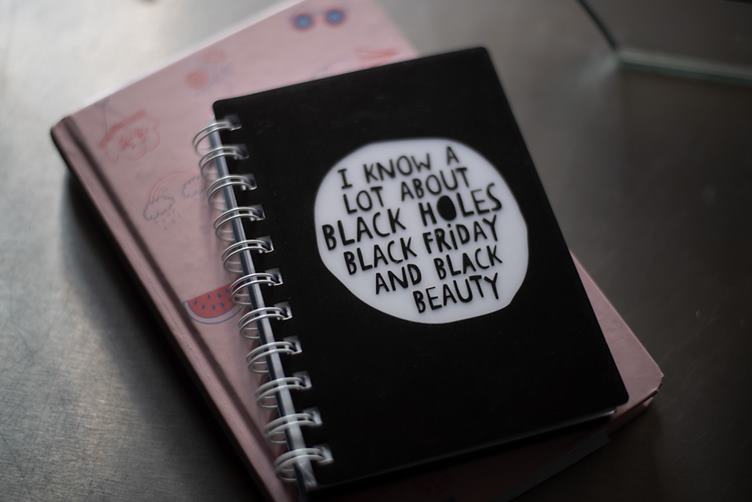 I KNOW A
LOT ABOUT
BLACK HOLES
BLACK FRiDAY
AND BLACK
BEAUTY